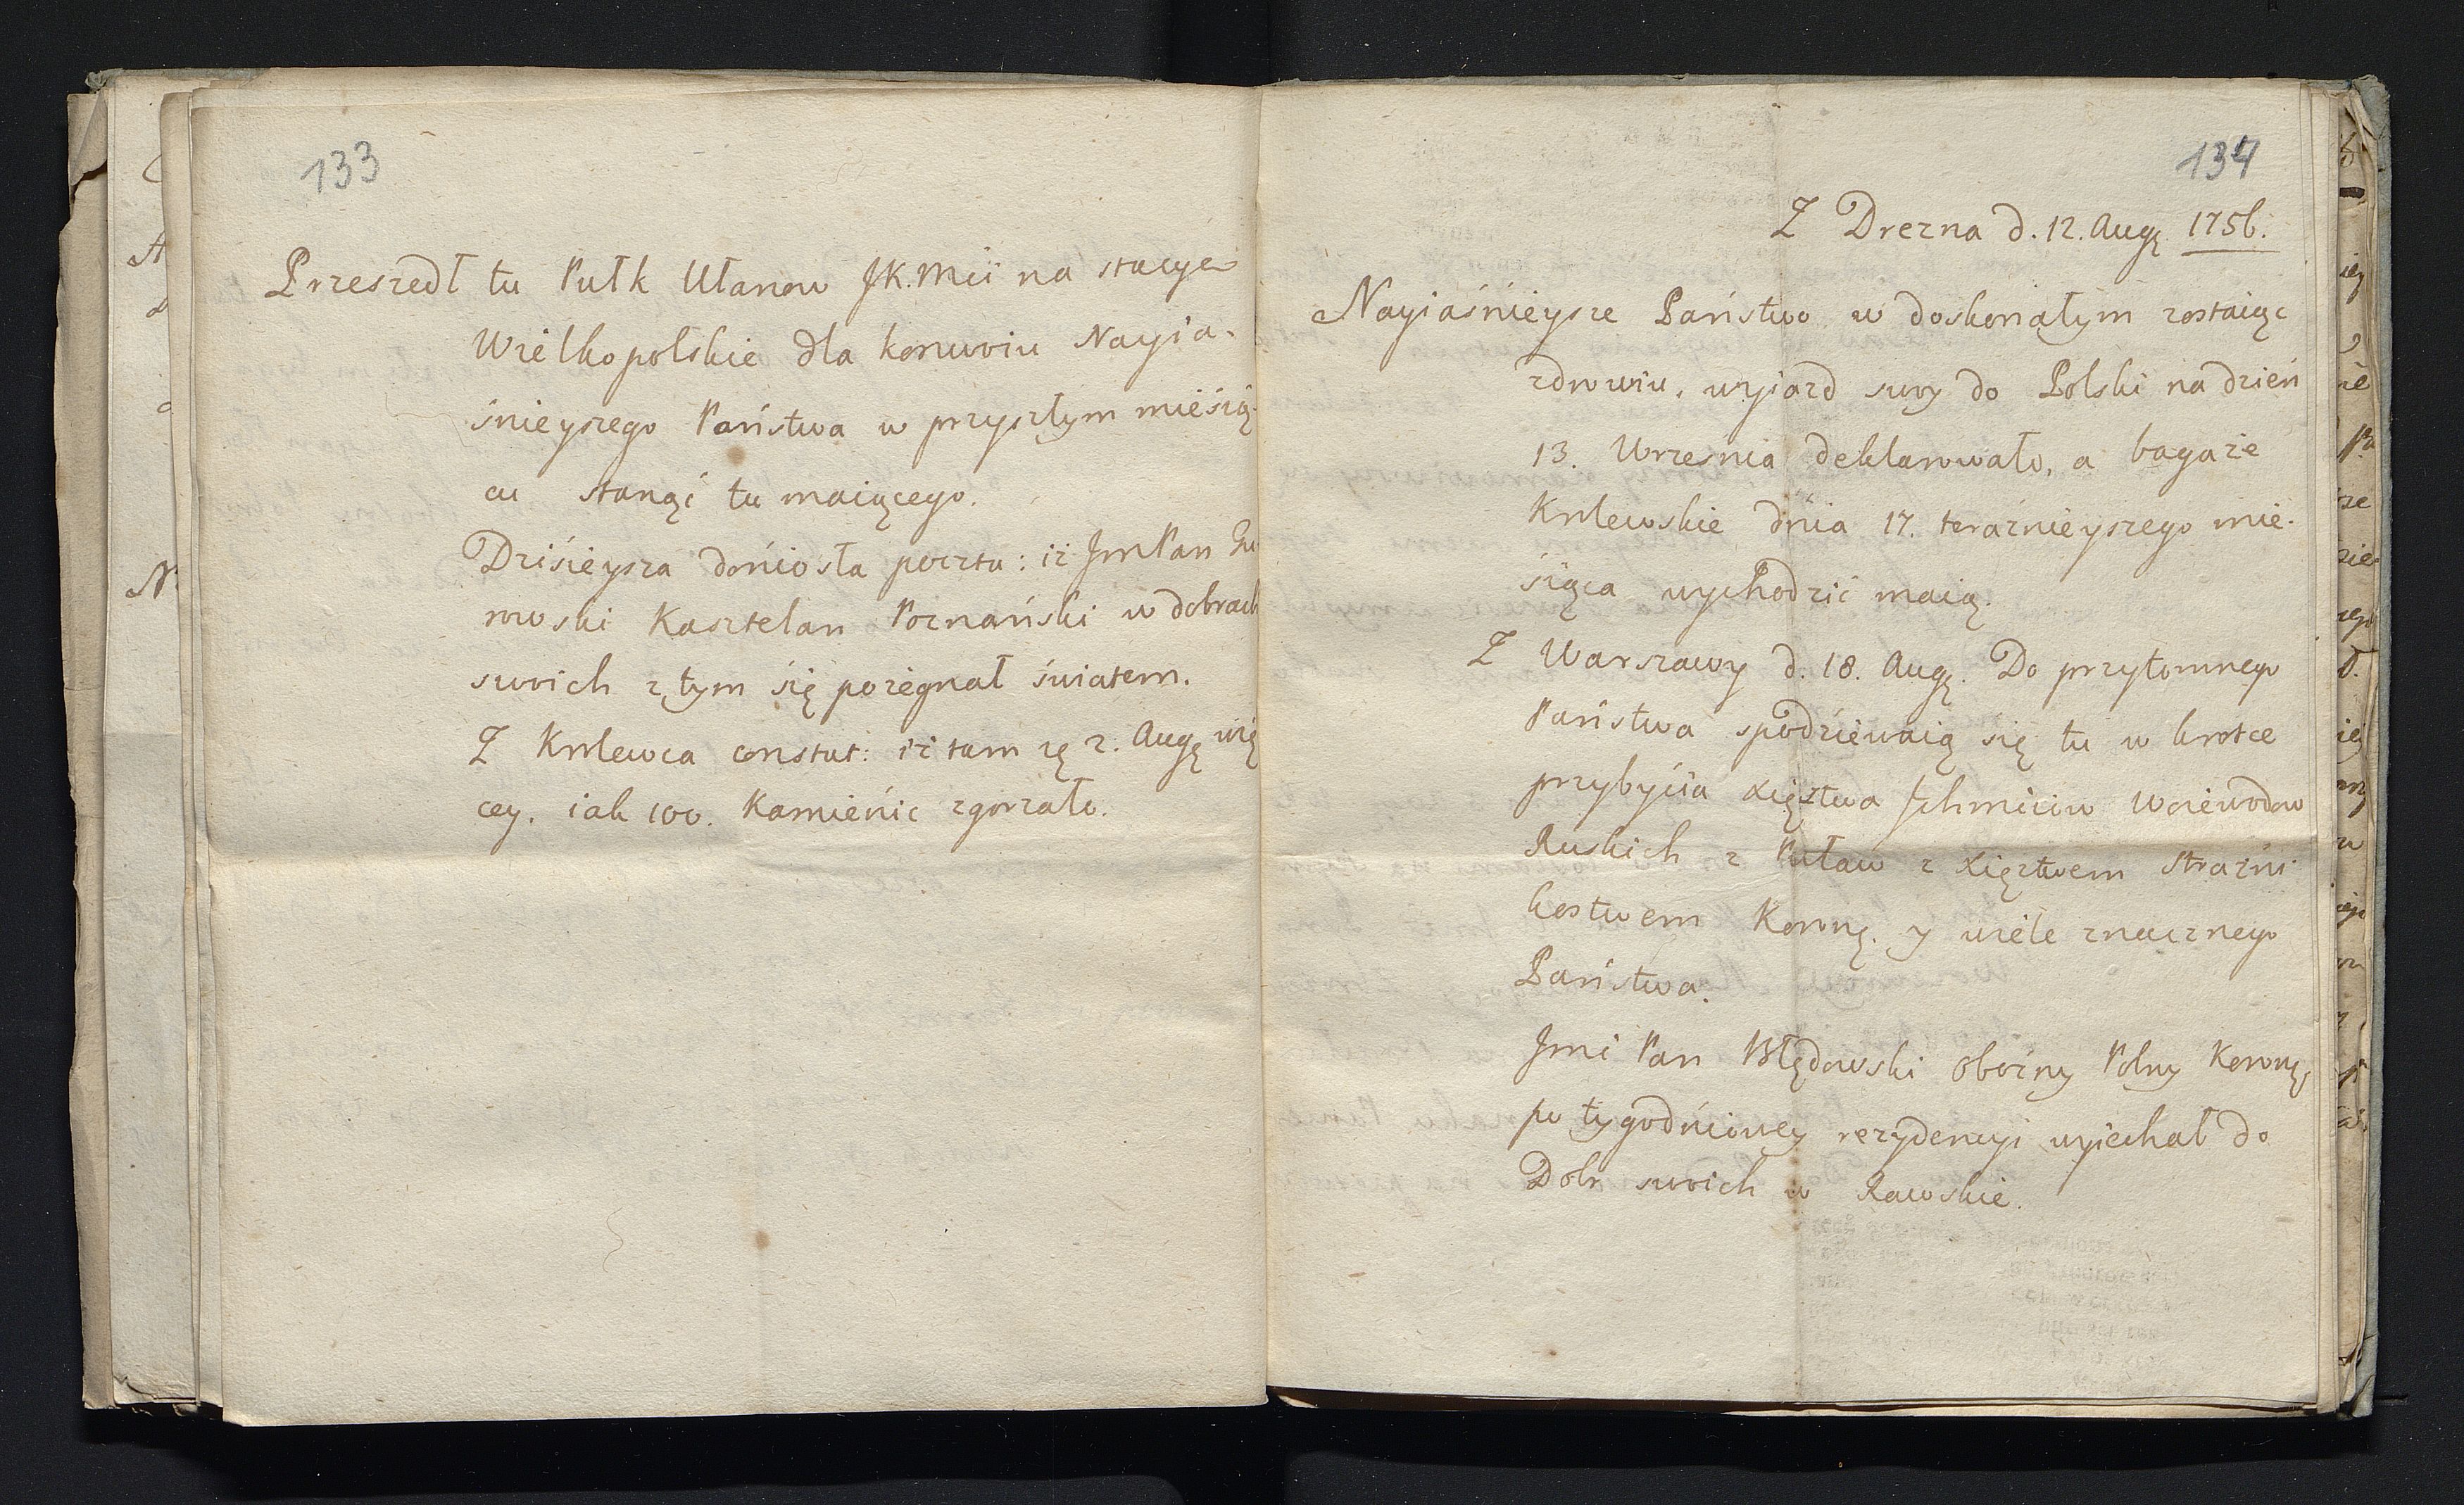 133
Przeszedł tu Pułk Ułanow JK.Mci na stacye
Wielkopolskie dla konwoiu Nayia-
śnieyszego Państwa w przyszłym miesią-
cu stanąć tu maiącego.
Dziśieysza doniosła poczta: iż JmPan Gu
rowski Kasztelan Poznański w dobrach
swoich z tym się pożegnał światem.
Z Krolewca constat: iż tam 2. Aug wię
cey. iak 100. Kamienic zgorzało.
134
Z Drezna d. 12. Aug. 1756.
Nayiaśnieysze Państwo w doskonałym zostaiąc
zdrowiu, wyiazd swoy do Polski na dzień
13. Wrzesnia deklarowało, a bagaże
Krolewskie dnia 17. teraznieyszego mie-
śiąca wychodzić maią.
Z Warszawy d. 18. Aug. Do przytomnego
Państwa spodziewaią się tu w krotce
przybycia Xięstwa Woiewodow
Ruskich z Puław z Xięztwem Strażni
kostwem Koronn. y wiele znacznego
Państwa.
Jmć Pan Błędowski Oboźny Polny Koronn,
po tygodniowey rezydencyi wyiechał do
Dobr swoich w Rawskie.